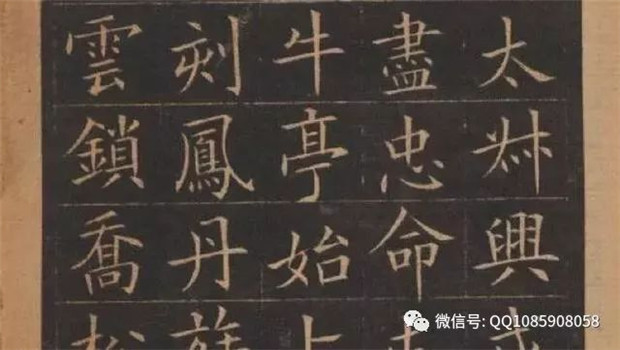 太興
盡忠命
牛亭始上
刻鳳丹
雲鎖喬松
微信号: QQ1085908058